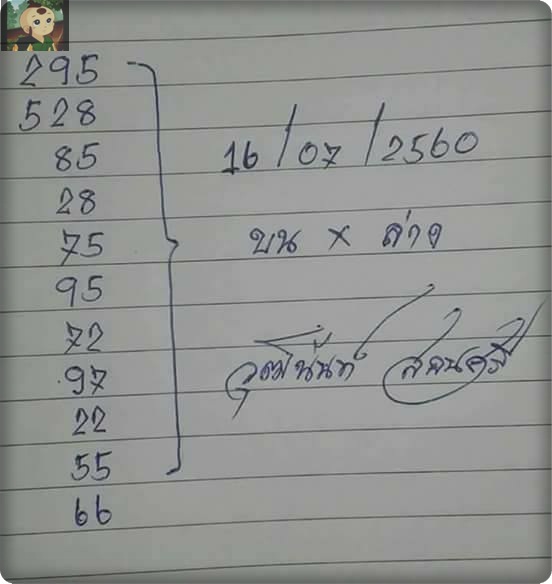 295
528
85
28
75
95
72
97
22
55
66
16/07/2560
บน x ล่าง
วุฒินันท์